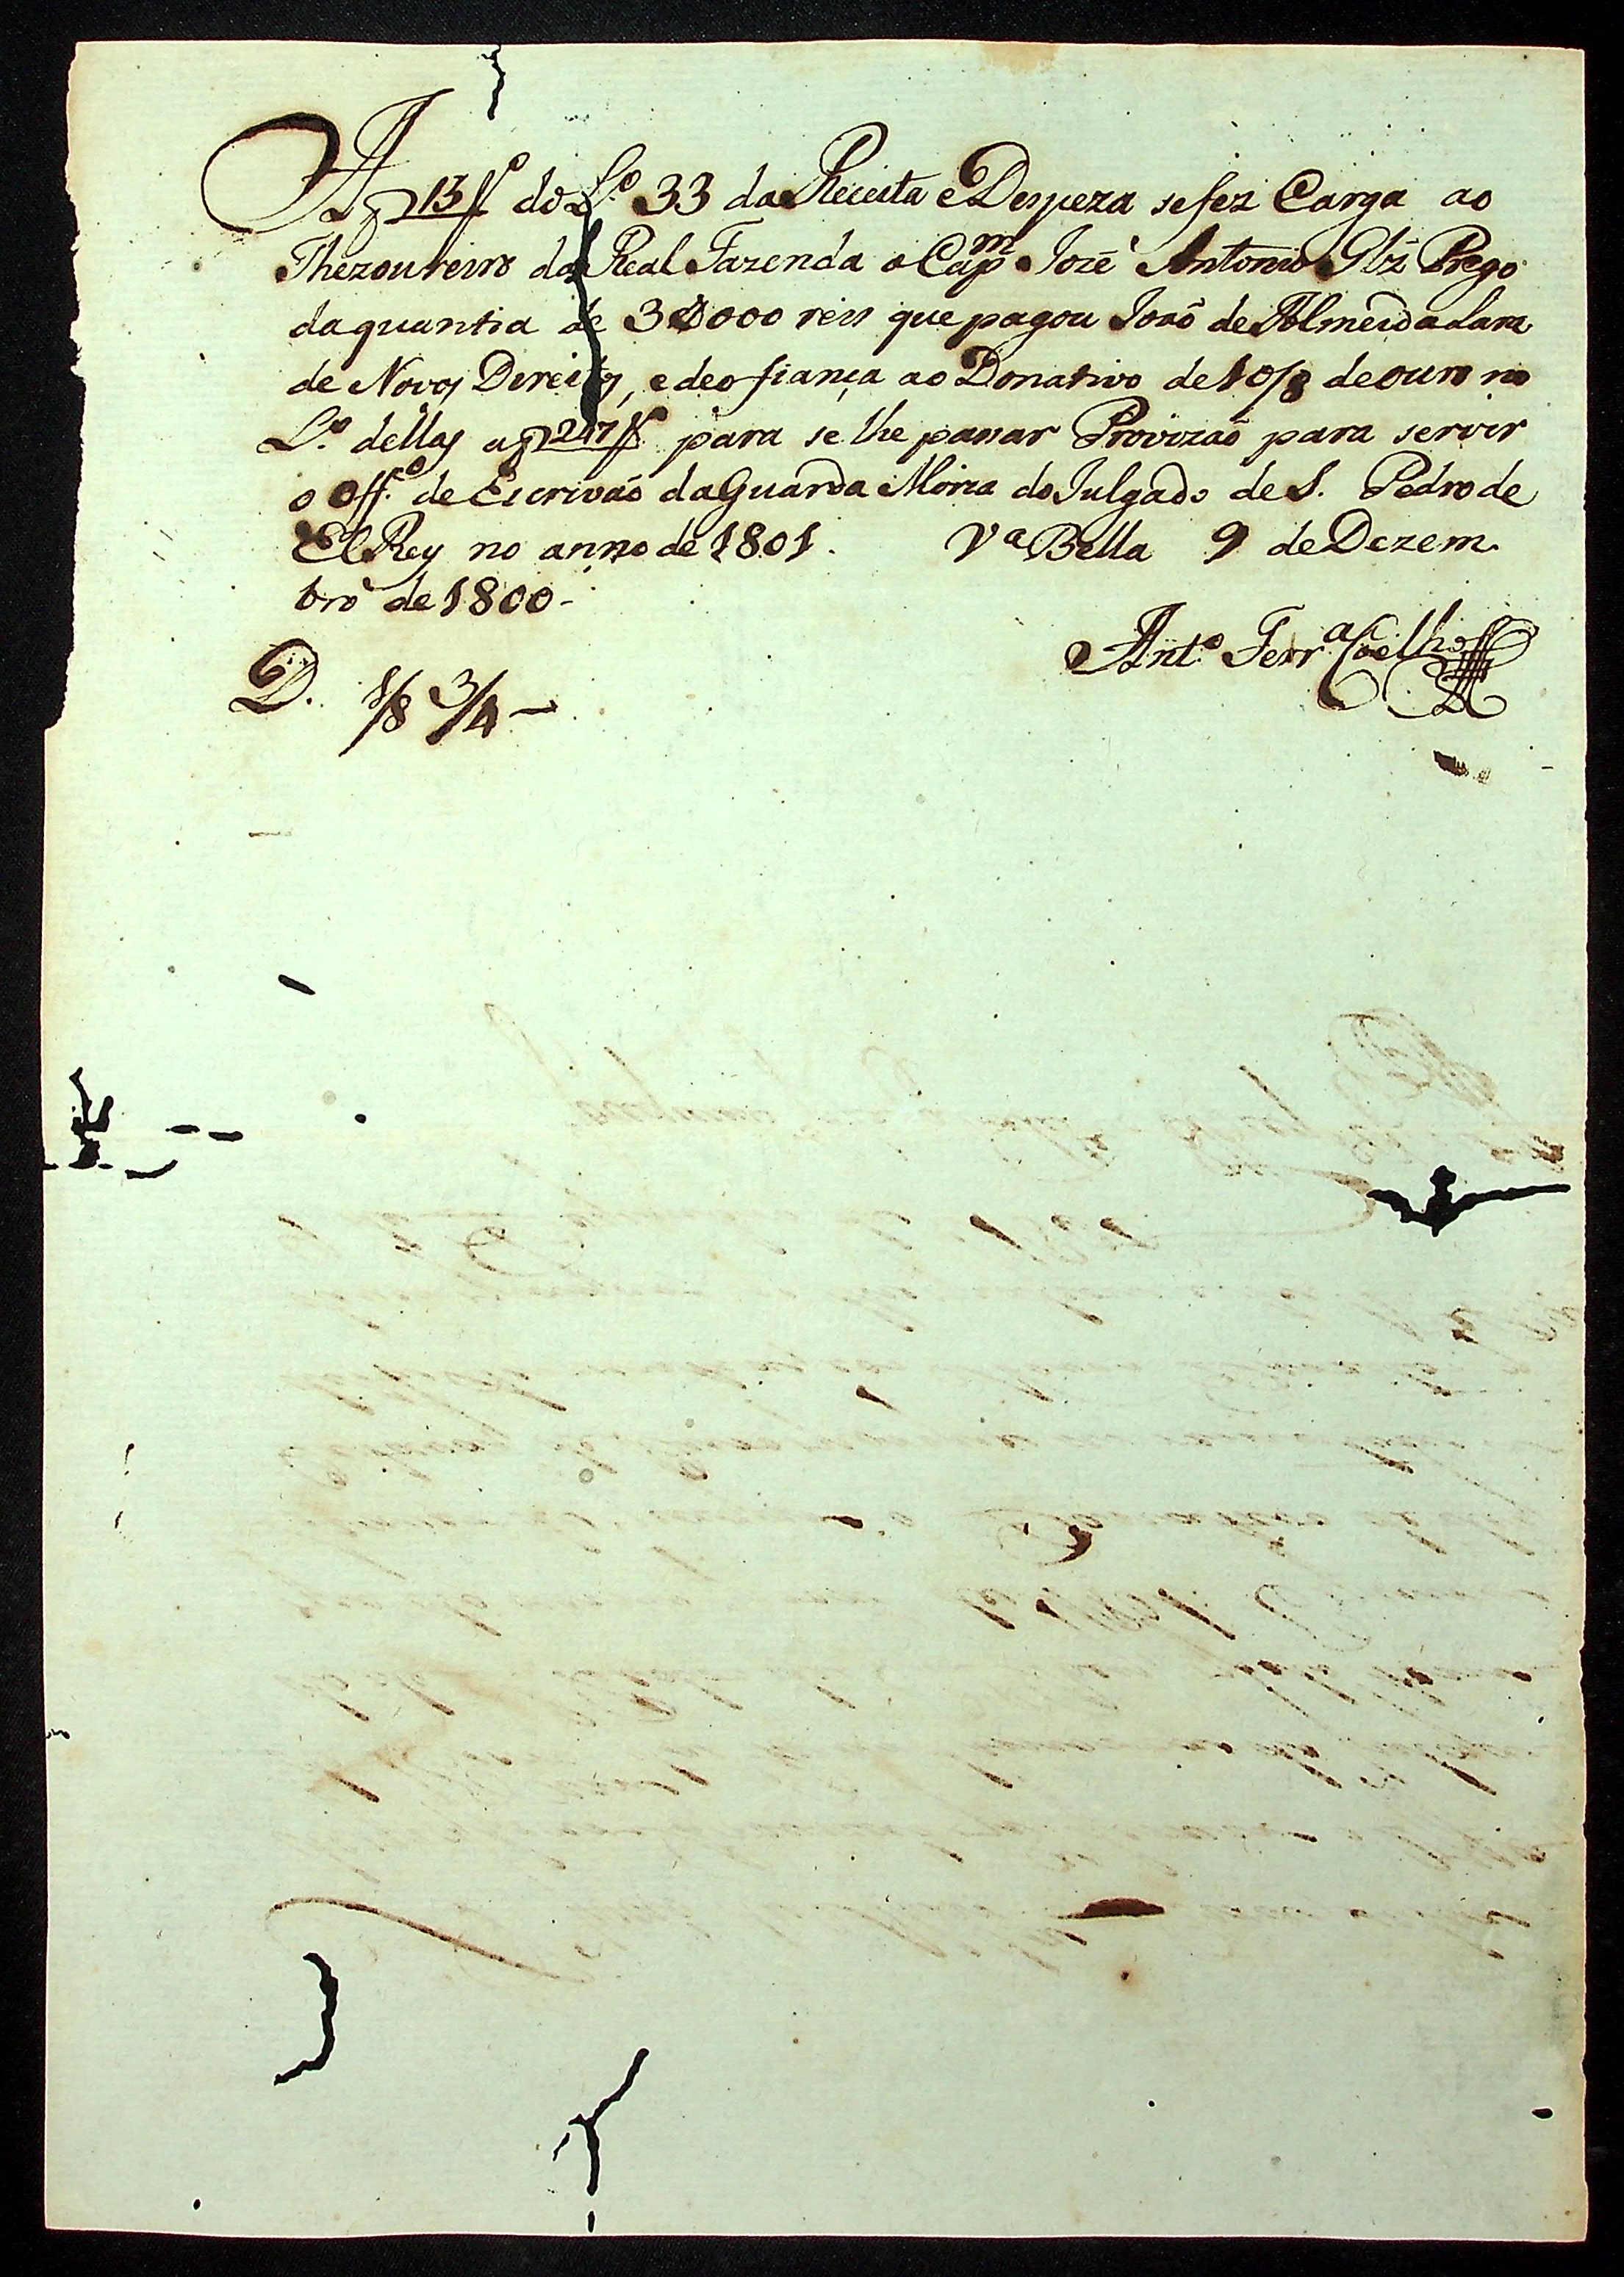 A f 13 do L.º 33 da Receita e Despeza se fez Carga ao
Thezoureiro da Real Fazenda o Cap.m Jozé Antonio Glz Prego
da quantia de 3$000 reis que pagou Joaõ de Almeida Lara
de Novos Direitos, e deo fiança ao Donativo de 10/8 de ouro no
L.º dellas a f 247 para se lhe passar Provizaõ para servir
o Off.º de Escrivaõ da Guarda Moria do Julgado de S. Pedro de
El Rey no anno de 1801. V.ª Bella 9 de Dezem
bro de 1800-
Ant.º Ferr.ª Coelho
D. 1/8 3/4 -